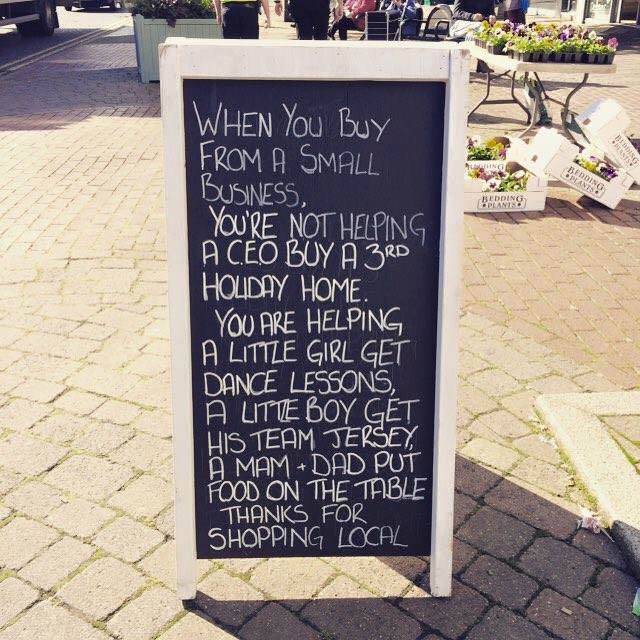 WHEN YOU BUY
FROM A SMALL
BUSINESS,
YOU'RE NOT HELPING
A C.E.O BUY A 3RD
HOLIDAY HOME.
YOU ARE HELPING,
A LITTLE GIRL GET
DANCE LESSONS,
A LITTLE BOY GET
HIS TEAM JERSEY,
A MAM + DAD PUT
FOOD ON THE TABLE
THANKS FOR
SHOPPING LOCAL
BEDDING
PLANTS
BEDDING
PLANTS